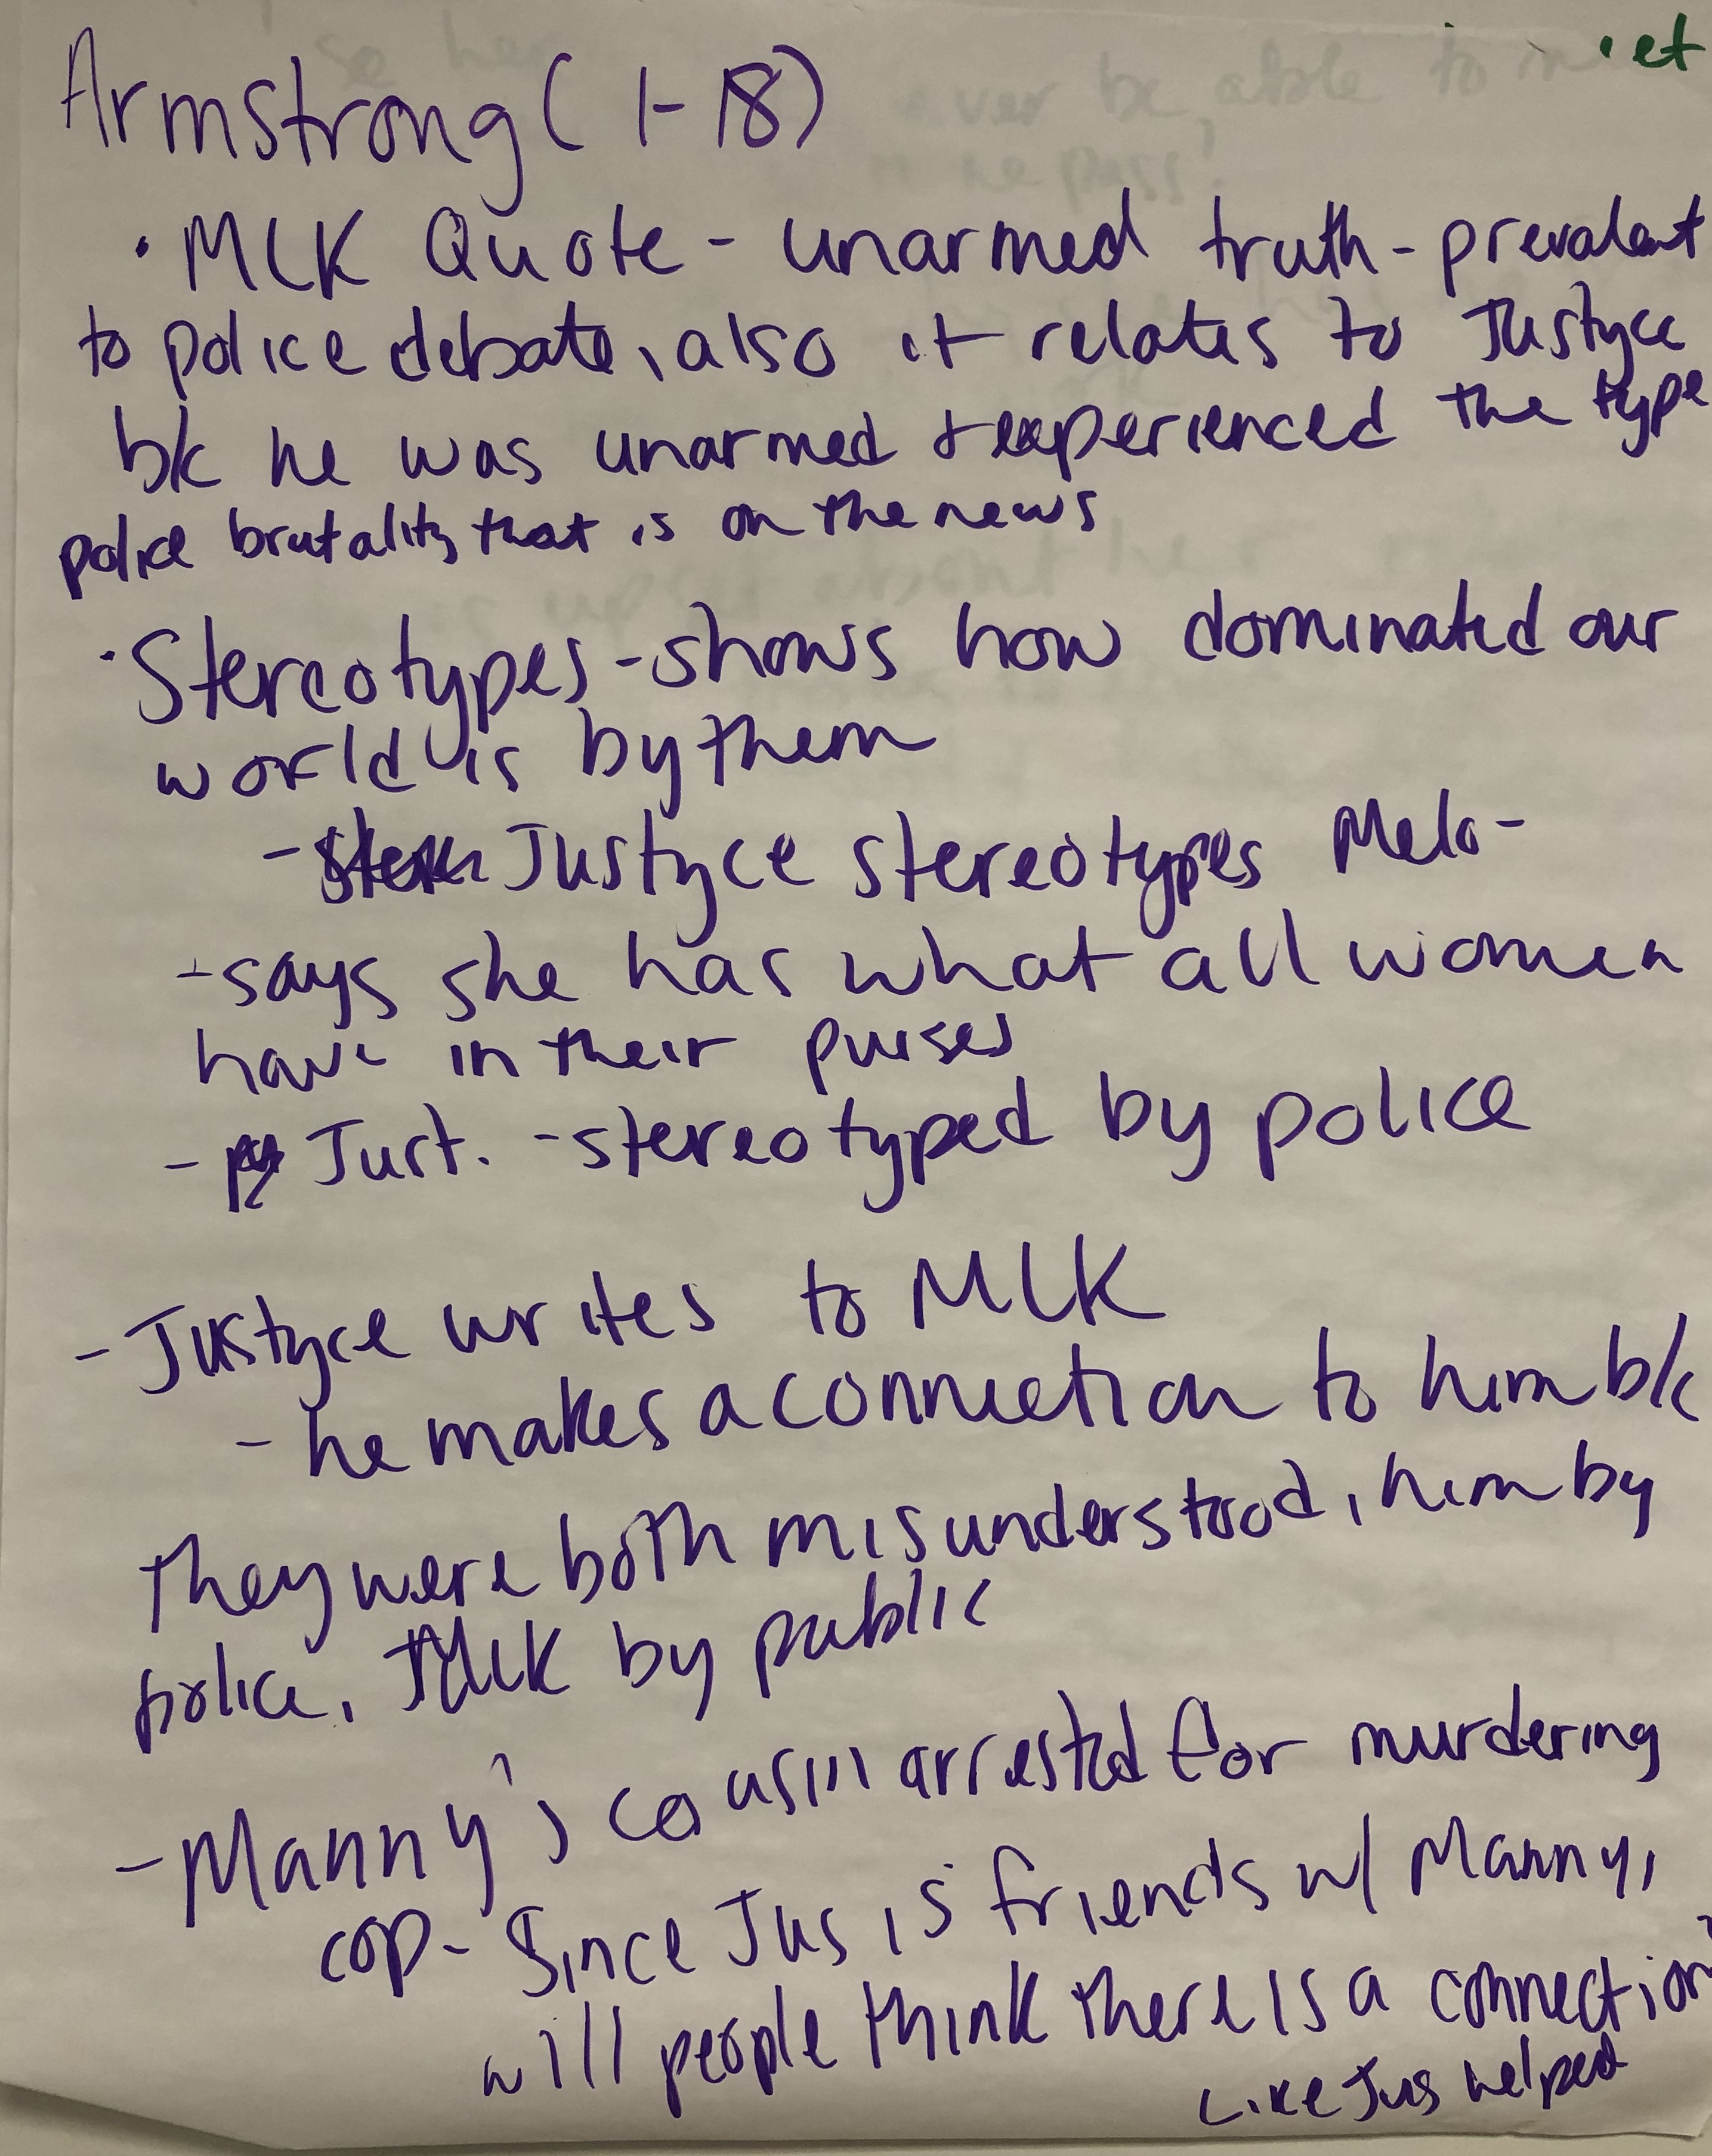 • et
Armstrong (1-18)
• MLK Quote - unarmed truth - prevalent
to police debate, also it relates to Justyce
b/c he was unarmed + experienced the type
police brutality that is on the news
• Stereotypes - shows how dominated our
world is by them
- Justyce stereotypes Melo -
- says she has what all women
have in their purses
- Just. - stereotyped by police
- Justyce writes to MLK
- he makes a connection to him b/c
they were both misunderstood, him by
police, MLK by public
- Manny's cousin arrested for murdering
cop - Since Jus is friends w/ Manny,
will people think there is a connection?
Like Jus helped